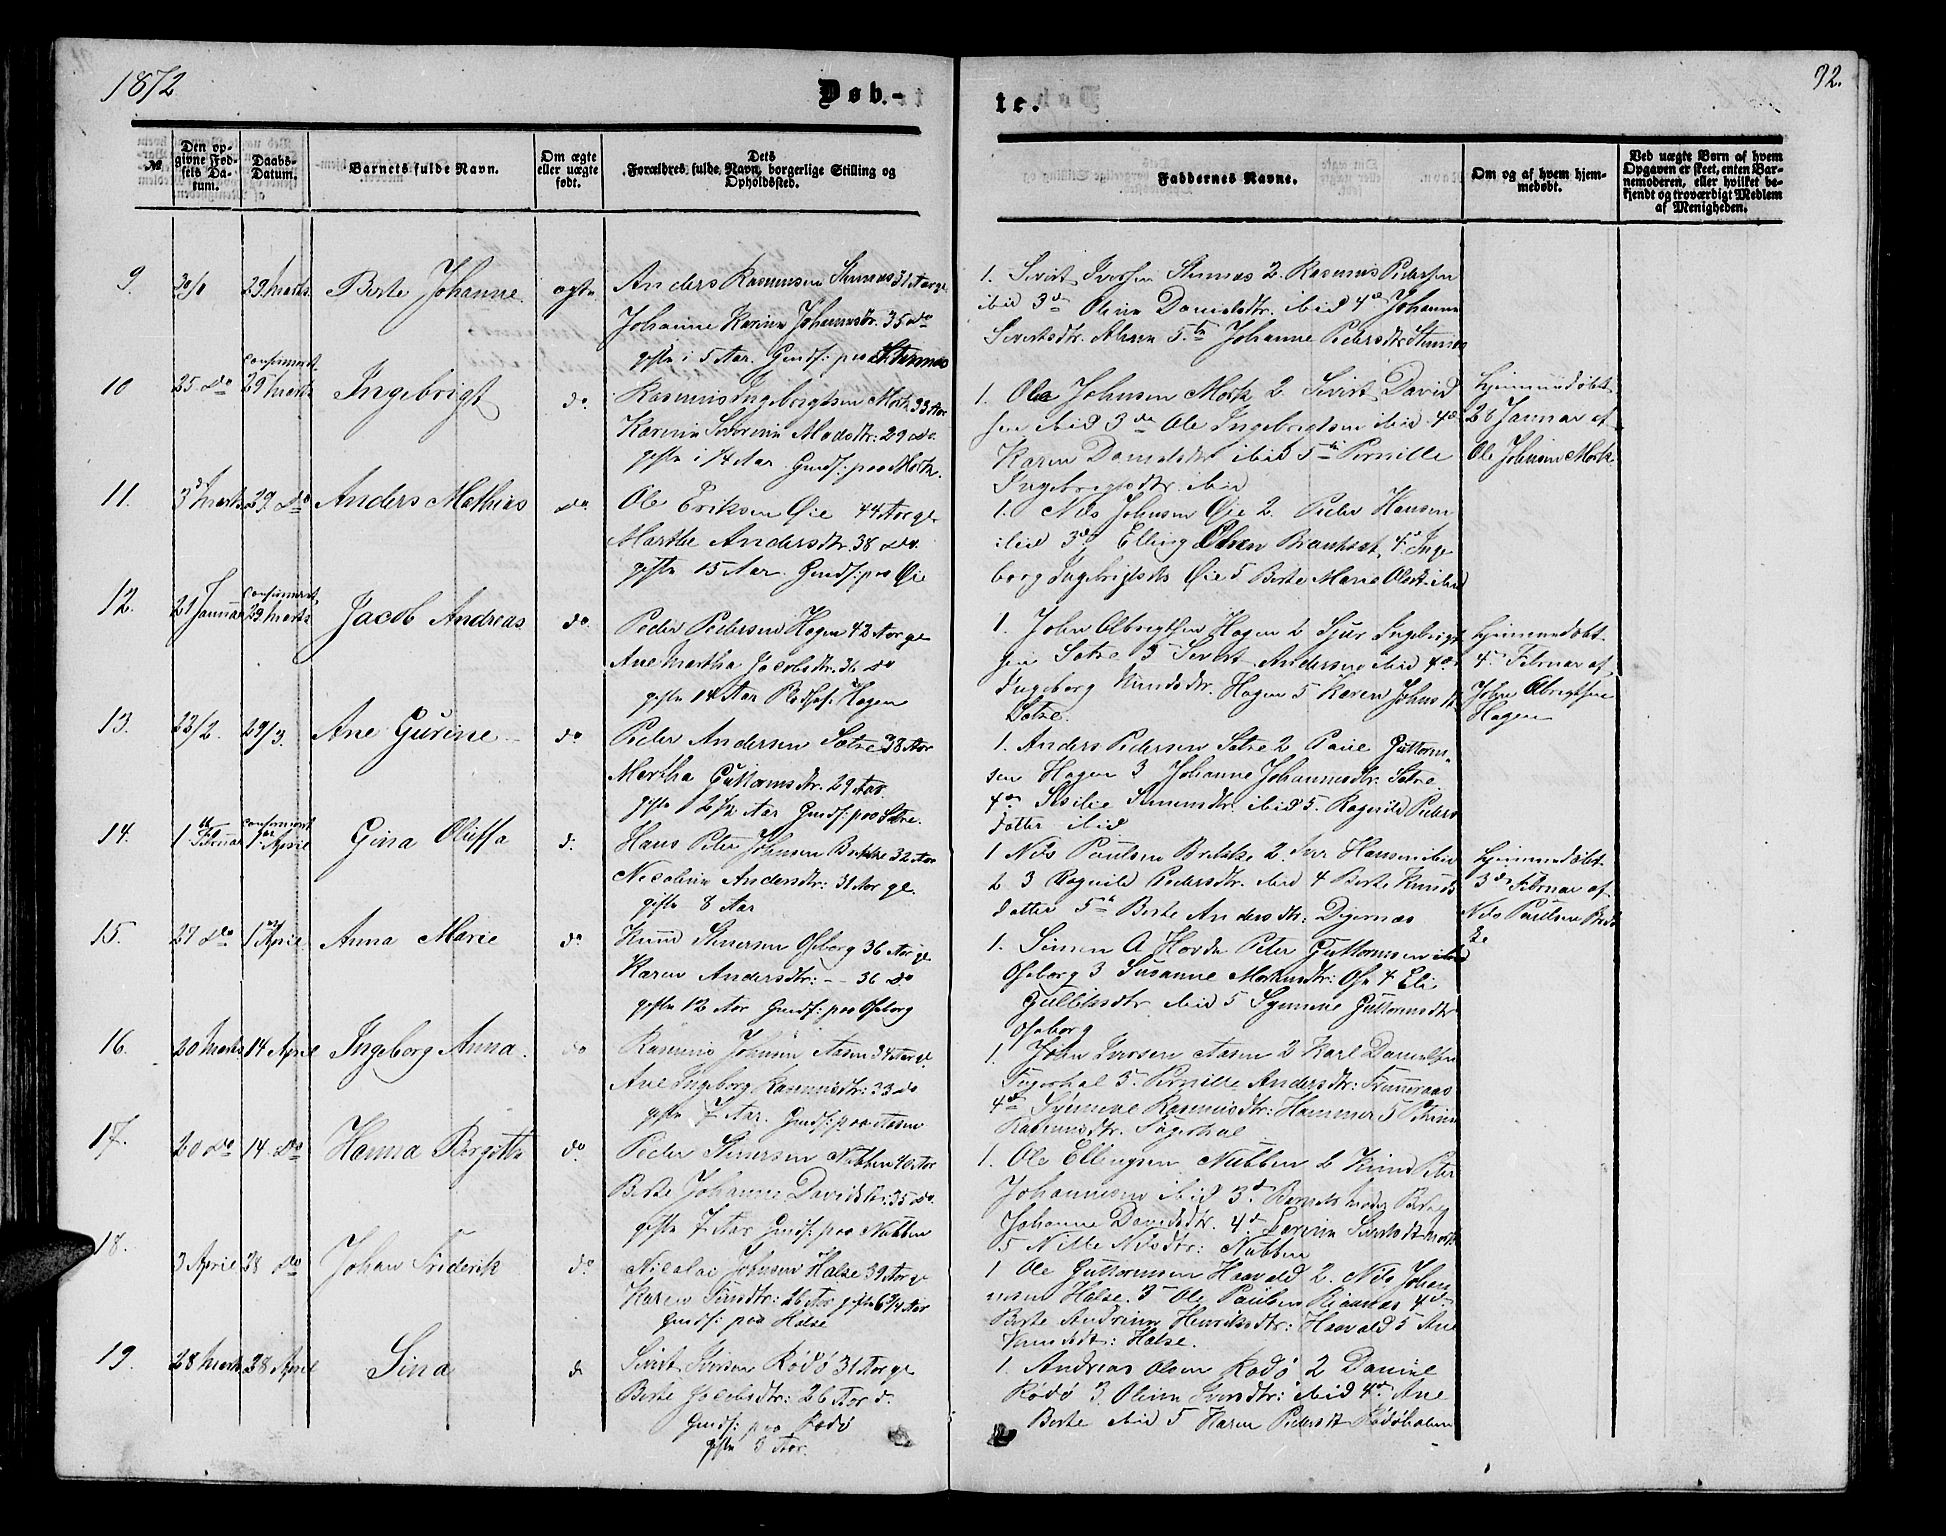 1872
Døb-
te.
92.
№
Den op-
givne Fød-
sels Da-
tum.
Daabs-
Datum.
Barnets fulde Navn.
Om ægte
eller uægte
født.
Dets
Forældres fulde Navn, borgerlige Stilling og
Opholdssted.
Faddernes Navne.
Om og af hvem hjem-
medøbt.
Ved uægte Børn af hvem
Opgaven er skeet, enten Bar-
nemoderen, eller hvilket be-
kjendt og troværdigt Medlem
af Menigheden.
9.
29 Marts
Berte Johanne
ægte
Anders Rasmusen 31 Aar gl
Johanne Karine Johannesdtr. 35 do
gifte i 5 Aar. Gmdf: paa
1. Sivert Iversen 2. Rasmus Pedersen
ibid 3de Oline Danielsdtr. ibid 4de Johanne
Sivertsdtr. 5te Johanne Pedersdtr
10
25 do
confirmeret
29 Marts
Ingebrigt
do
Rasmus Ingebrigtsen Mork 33 Aar
Karine Severine Madsdtr: 29 do
gifte i 14 Aar Gmdf: paa Mork.
1. Ole Johnsen Mork 2. Sivert David
sen ibid 3de Ole Ingebrigtsen ibid 4de
Karen Danielsdtr ibid 5te Pernille
Ingebrigtsdtr. ibid
Hjemmedøbt
28 Januar af
Ole Johnsen Mork
11.
3 Marts
29 do
Anders Mathias
do
Ole Eriksen Øie 44 Aar gl.
Marthe Andersdtr. 38 do.
gifte 15 Aar. Gmdf: paa Øie
1. Nils Johnsen Øie 2. Peder Hansen
ibid 3de Elling Olsen 4de Inge
borg Ingebrigtsdtr Øie 5 Berte Marie Olsdt. ibid
12.
21 Januar
confirmeret
29 Marts
Jacob Andreas
do
Peder Pedersen Hagen 42 Aar gl
Ane Martha Jacobsdtr. 36 do
gifte 14 Aar Hagen
1. John Olbrigtsen Hagen 2 Sjur Ingebrigt
sen Sætre 3 Sivert Andersen ibid 4de
Ingeborg Knudsdtr. Hagen 5 Karen Johnsdt
Sætre.
Hjemmedøbt
4de Februar af
John Olbrigtsen
Hagen
13.
23/2.
29/3.
Ane Gurine
do
Peder Andersen Sætre 38 Aar
Martha Guttormsdtr. 29 Aar
gifte 2 1/2 Aar Gmdf: paa Sætre.
1. Anders Pedersen Sætre 2 Paul Guttorm-
sen Hagen 3 Johanne Johannesdtr. Sætre
4de Sisilie Simensdtr. ibid 5. Ragnild Peders
datter ibid
14.
1 Februar
confirmeret
1 April
Gina Oluffa
d.
Hans Peter Johnsen Brekke 32 Aar
Nicoline Andersdtr: 31 Aar gl.
gifte 8 Aar
1 Nils Paulsen Brekke 2. Iver Hansen ibid
3 Ragnild Pedersdtr. ibid 4 Berte Knuds
datter 5te Berte Andersdtr: Digernæs
Hjemmedøbt
3de Februar af
Nils Paulsen Brek
ke
15.
27 do
1 April
Anna Marie
do
Knud Simensen Oseborg 36 Aar gl
Karen Andersdtr: -- 36 do
gifte 12 Aar Gmdf: paa Oseborg
1. Simen A Hovde Peter Guttormsen
Oseborg 3 Susanne Markusdtr: Ose 4 Eli
ibid 5 Synneve Guttormsdtr
Oseborg
16.
20 Marts
14 April
Ingeborg Anna.
do
Rasmus Johnsen Aasen 34 Aar gl.
Ane Ingeborg Rasmusdtr: 33 do
gifte 7 Aar. Gmdf: paa Aasen
1. John Iversen Aasen 2 Karl Danielsen
3. Pernille Andersdtr:
4de Synneve Rasmusdtr: Hammer 5
Rasmusdtr.
17.
20 do
14 do
Hanna Bergithe
do
Peder Simensen Nubben 40 Aar
Berte Johanne Davidsdtr. 35 do.
gifte 7 Aar Gmdf: paa Nubben
1. Ole Ellingsen Nubben 2 Knud Peter
Johannesen ibid 3de Barnets Moder Berte
Johanne Davidsdtr. 4de Severine Sivertsdt Mork
5 Nille Nilsdtr: Nubben
18.
3 April
28 do
Johan Friderik
do
Nicolai Johnsen Halse 39 Aar gl
Karen 26 Aar gifte 6 3/4 Aar
Gmdf: paa Halse
1 Ole Guttormsen Haavold 2. Nils Johan
nesen Halse. 3 Ole Paulsen 4de
Berte Andrine Henriksdtr: Haavold 5 Ane
Halse.
19.
28 Marts
28 April
Sina
do
Sivert Iversen Rødø 31 Aar gl
Berte Jacobsdtr: 26 Aar d.
Gmdf: paa Rødø
gifte 3 Aar.
1. Andreas Olsen Rødø 2 Daniel
Rødø 3 Oline Iversdtr: ibid 4de Ane
Berte ibid 5 Karen Pedersdt Rødøholmen